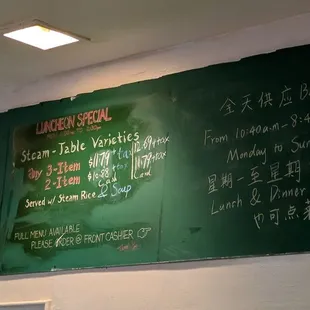 LUNCHEON SPECIAL
Steam - Table Varieties
Any 3-Item $11.79 +tax 12.69+tax
2-Item $10.58 +tax 11.79+tax
Served w/ Steam Rice & Soup
FULL MENU AVAILABLE
PLEASE ORDER @ FRONT CASHIER
全天供应
From 10:40a.m-8:4
Monday to Su
星期一至星期
Lunch & Dinner
也可点菜